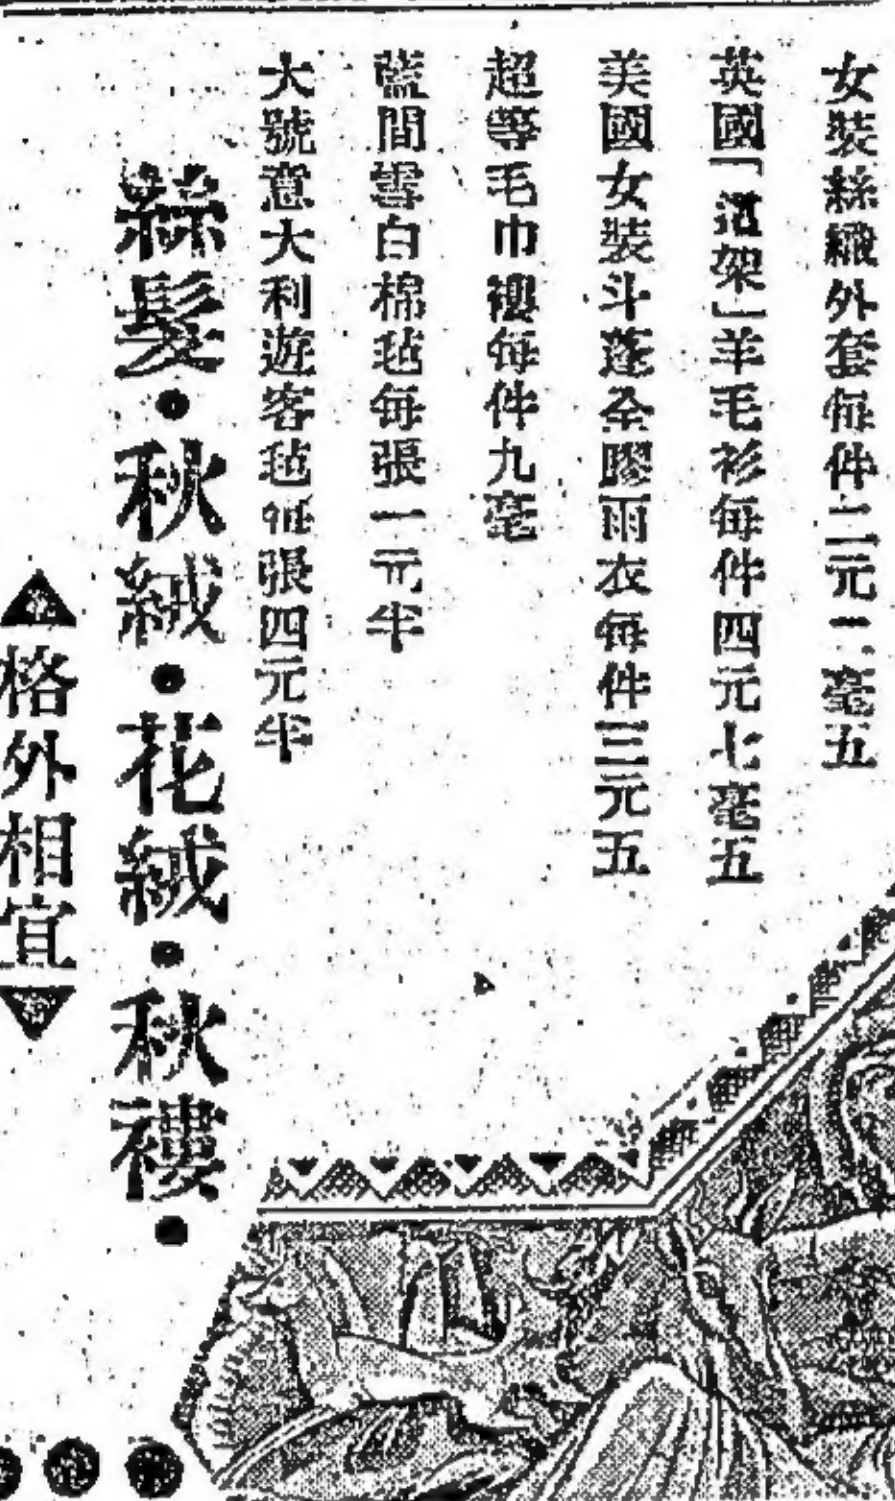 女裝絲織外套每件二元二毫五
英國「道架」羊毛衫每件四元七毫五
美國女裝斗蓬全膠雨衣每件三元五
超等毛巾褸每件九毫
藍間雪白棉毡每張一元半
大號意大利遊客毡每張四元半
絲髮•秋絨•花絨•秋褸•
格外相宜